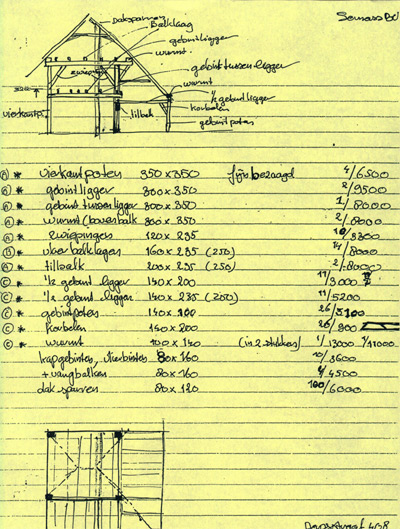 daksparren
Balklaag
gebintligger
wurmt
gebint tussen ligger
wurmt
1/2 gebint ligger
korbelen
gebintpoten
tilbalk
vierkantp.
(A) * vierkantpoten 350 x 350 fijn bezaagd 4/6500
(A) * gebint ligger 300 x 350 2/9500
(A) * gebint tussen ligger 300 x 350 1/8000
(A) * wurmt (bovenbalk 300 x 350 2/8000
(A) * zwiepingen 120 x 235 10/3300
(B) * vloerbalklagen 160 x 235 (250) 14/8000
(A) * tilbalk 200 x 235 (250) 2/8000
(C) * 1/2 gebint ligger 140 x 200 11/3000
(C) * 1/2 gebint ligger 140 x 235 (200) 11/5200
(C) * gebintpoten 140 x 200 26/3100
(C) * korbelen 140 x 200 26/800
(C) * wurmt 100 x 140 (in 2 stukken) 1/13000 4/11000
kapgebinten, 80 x 160 10/3600
+ vangbalken 80 x 160 4500
dak sparren 80 x 120 100/6000